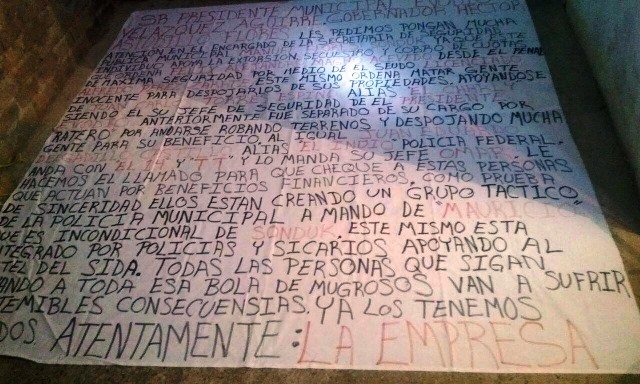 SR. PRESIDENTE MUNICIPAL
VELAZQUEZ AGUIRRE. GOBERNADOR HECTOR
FLORES LES PEDIMOS PONGAN MUCHA
ATENCION EN EL ENCARGADO DE LA SECRETARIA DE SEGURIDAD
PUBLICA MUNICIPAL
APOYA LA EXTORSION, SECUESTRO Y COBRO DE CUOTAS
DESDE EL PENAL
DE MAXIMA SEGURIDAD POR MEDIO DE EL
ESTE MISMO ORDENA MATAR GENTE
INOCENTE PARA DESPOJARLOS DE SUS PROPIEDADES. APOYANDOSE
ALIAS EL PRESIDENTE
SIENDO EL SU JEFE DE SEGURIDAD DE EL
ANTERIORMENTE FUE SEPARADO DE SU CARGO POR
RATERO POR ANDARSE ROBANDO TERRENOS Y DESPOJANDO MUCHA
GENTE PARA SU BENEFICIO AL IGUAL
ALIAS EL INDIO POLICIA FEDERAL.
ANDA CON EL Y "TT" Y LO MANDA SU JEFE
HACEMOS EL LLAMADO PARA QUE CHEQUE A ESTAS PERSONAS
QUE ACTUAN POR BENEFICIOS FINANCIEROS, COMO PRUEBA
DE SINCERIDAD ELLOS ESTAN CREANDO UN GRUPO TACTICO
DE LA POLICIA MUNICIPAL A MANDO DE "MAURICIO
UE ES INCONDICIONAL DE SONDUK, ESTE MISMO ESTA
TEGRADO POR POLICIAS Y SICARIOS APOYANDO AL
TEL DEL SIDA. TODAS LAS PERSONAS QUE SIGAN
ANDO A TODA ESA BOLA DE MUGROSOS VAN A SUFRIR
TEMIBLES CONSECUENCIAS. YA LOS TENEMOS
DOS ATENTAMENTE: LA EMPRESA